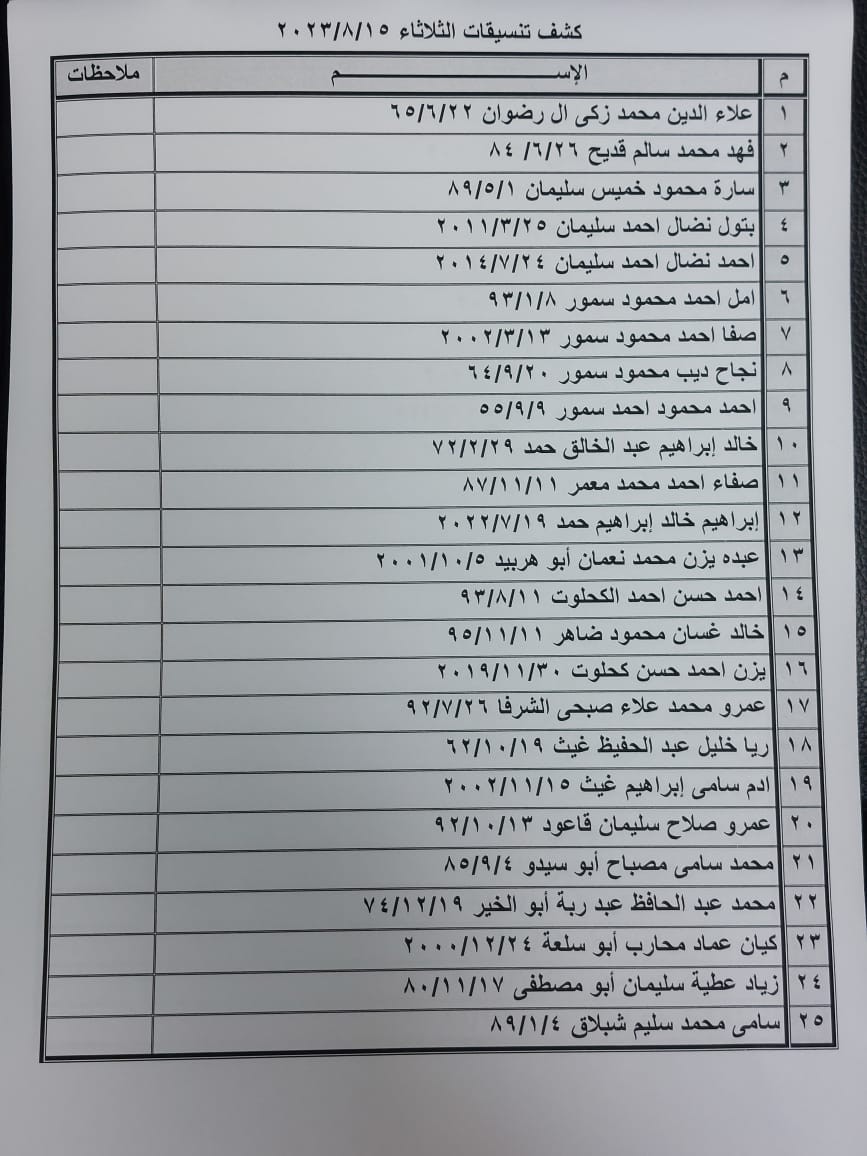 كشف تنسيقات الثلاثاء ٢٠٢٣/٨/١٥
م الإســــم ملاحظات
١ علاء الدين محمد زكى ال رضوان ٦٥/٦/٢٢
٢ فهد محمد سالم قديح ٨٤/٦/٢٦
٣ سارة محمود خميس سليمان ٨٩/٥/١
٤ بتول نضال احمد سليمان ٢٠١١/٣/٢٥
٥ احمد نضال احمد سليمان ٢٠١٤/٧/٢٤
٦ امل احمد محمود سمور ٩٣/١/٨
٧ صفا احمد محمود سمور ٢٠٠٢/٣/١٣
٨ نجاح ديب محمود سمور ٦٤/٩/٢٠
٩ احمد محمود احمد سمور ٥٥/٩/٩
١٠ خالد إبراهيم عبد الخالق حمد ٧٢/٢/٢٩
١١ صفاء احمد محمد معمر ٨٧/١١/١١
١٢ إبراهيم خالد إبراهيم حمد ٢٠٢٢/٧/١٩
١٣ عبده يزن محمد نعمان أبو هربيد ٢٠٠١/١٠/٥
١٤ احمد حسن احمد الكحلوت ٩٣/٨/١١
١٥ خالد غسان محمود ضاهر ٩٥/١١/١١
١٦ يزن احمد حسن كحلوت ٢٠١٩/١١/٣٠
١٧ عمرو محمد علاء صبحى الشرفا ٩٢/٧/٢٦
١٨ ريا خليل عبد الحفيظ غيث ٦٢/١٠/١٩
١٩ ادم سامى إبراهيم غيث ٢٠٠٢/١١/١٥
٢٠ عمرو صلاح سليمان قاعود ٩٢/١٠/١٣
٢١ محمد سامى مصباح أبو سيدو ٨٥/٩/٤
٢٢ محمد عبد الحافظ عبد ربة أبو الخير ٧٤/١٢/١٩
٢٣ كيان عماد محارب أبو سلعة ٢٠٠٠/١٢/٢٤
٢٤ زياد عطية سليمان أبو مصطفى ٨٠/١١/١٧
٢٥ سامى محمد سليم شبلاق ٨٩/١/٤